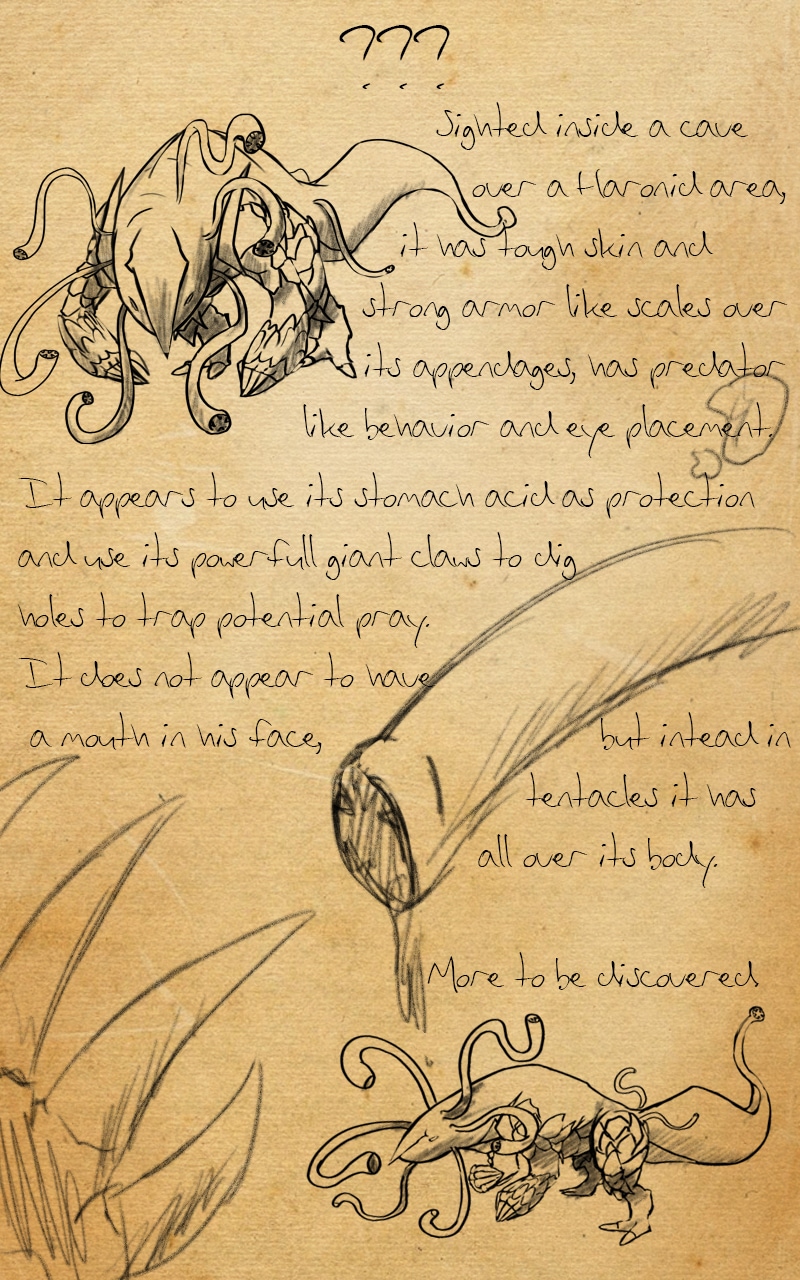 ???
Sighted inside a cave
over a Haronid area,
it has tough skin and
strong armor like scales over
its appendages, has predator
like behavior and eye placement.
It appears to use its stomach acid as protection
and use its powerfull giant claws to dig
holes to trap potential pray.
It does not appear to have
a mouth in his face,
but intead in
tentacles it has
all over its body.
More to be discovered